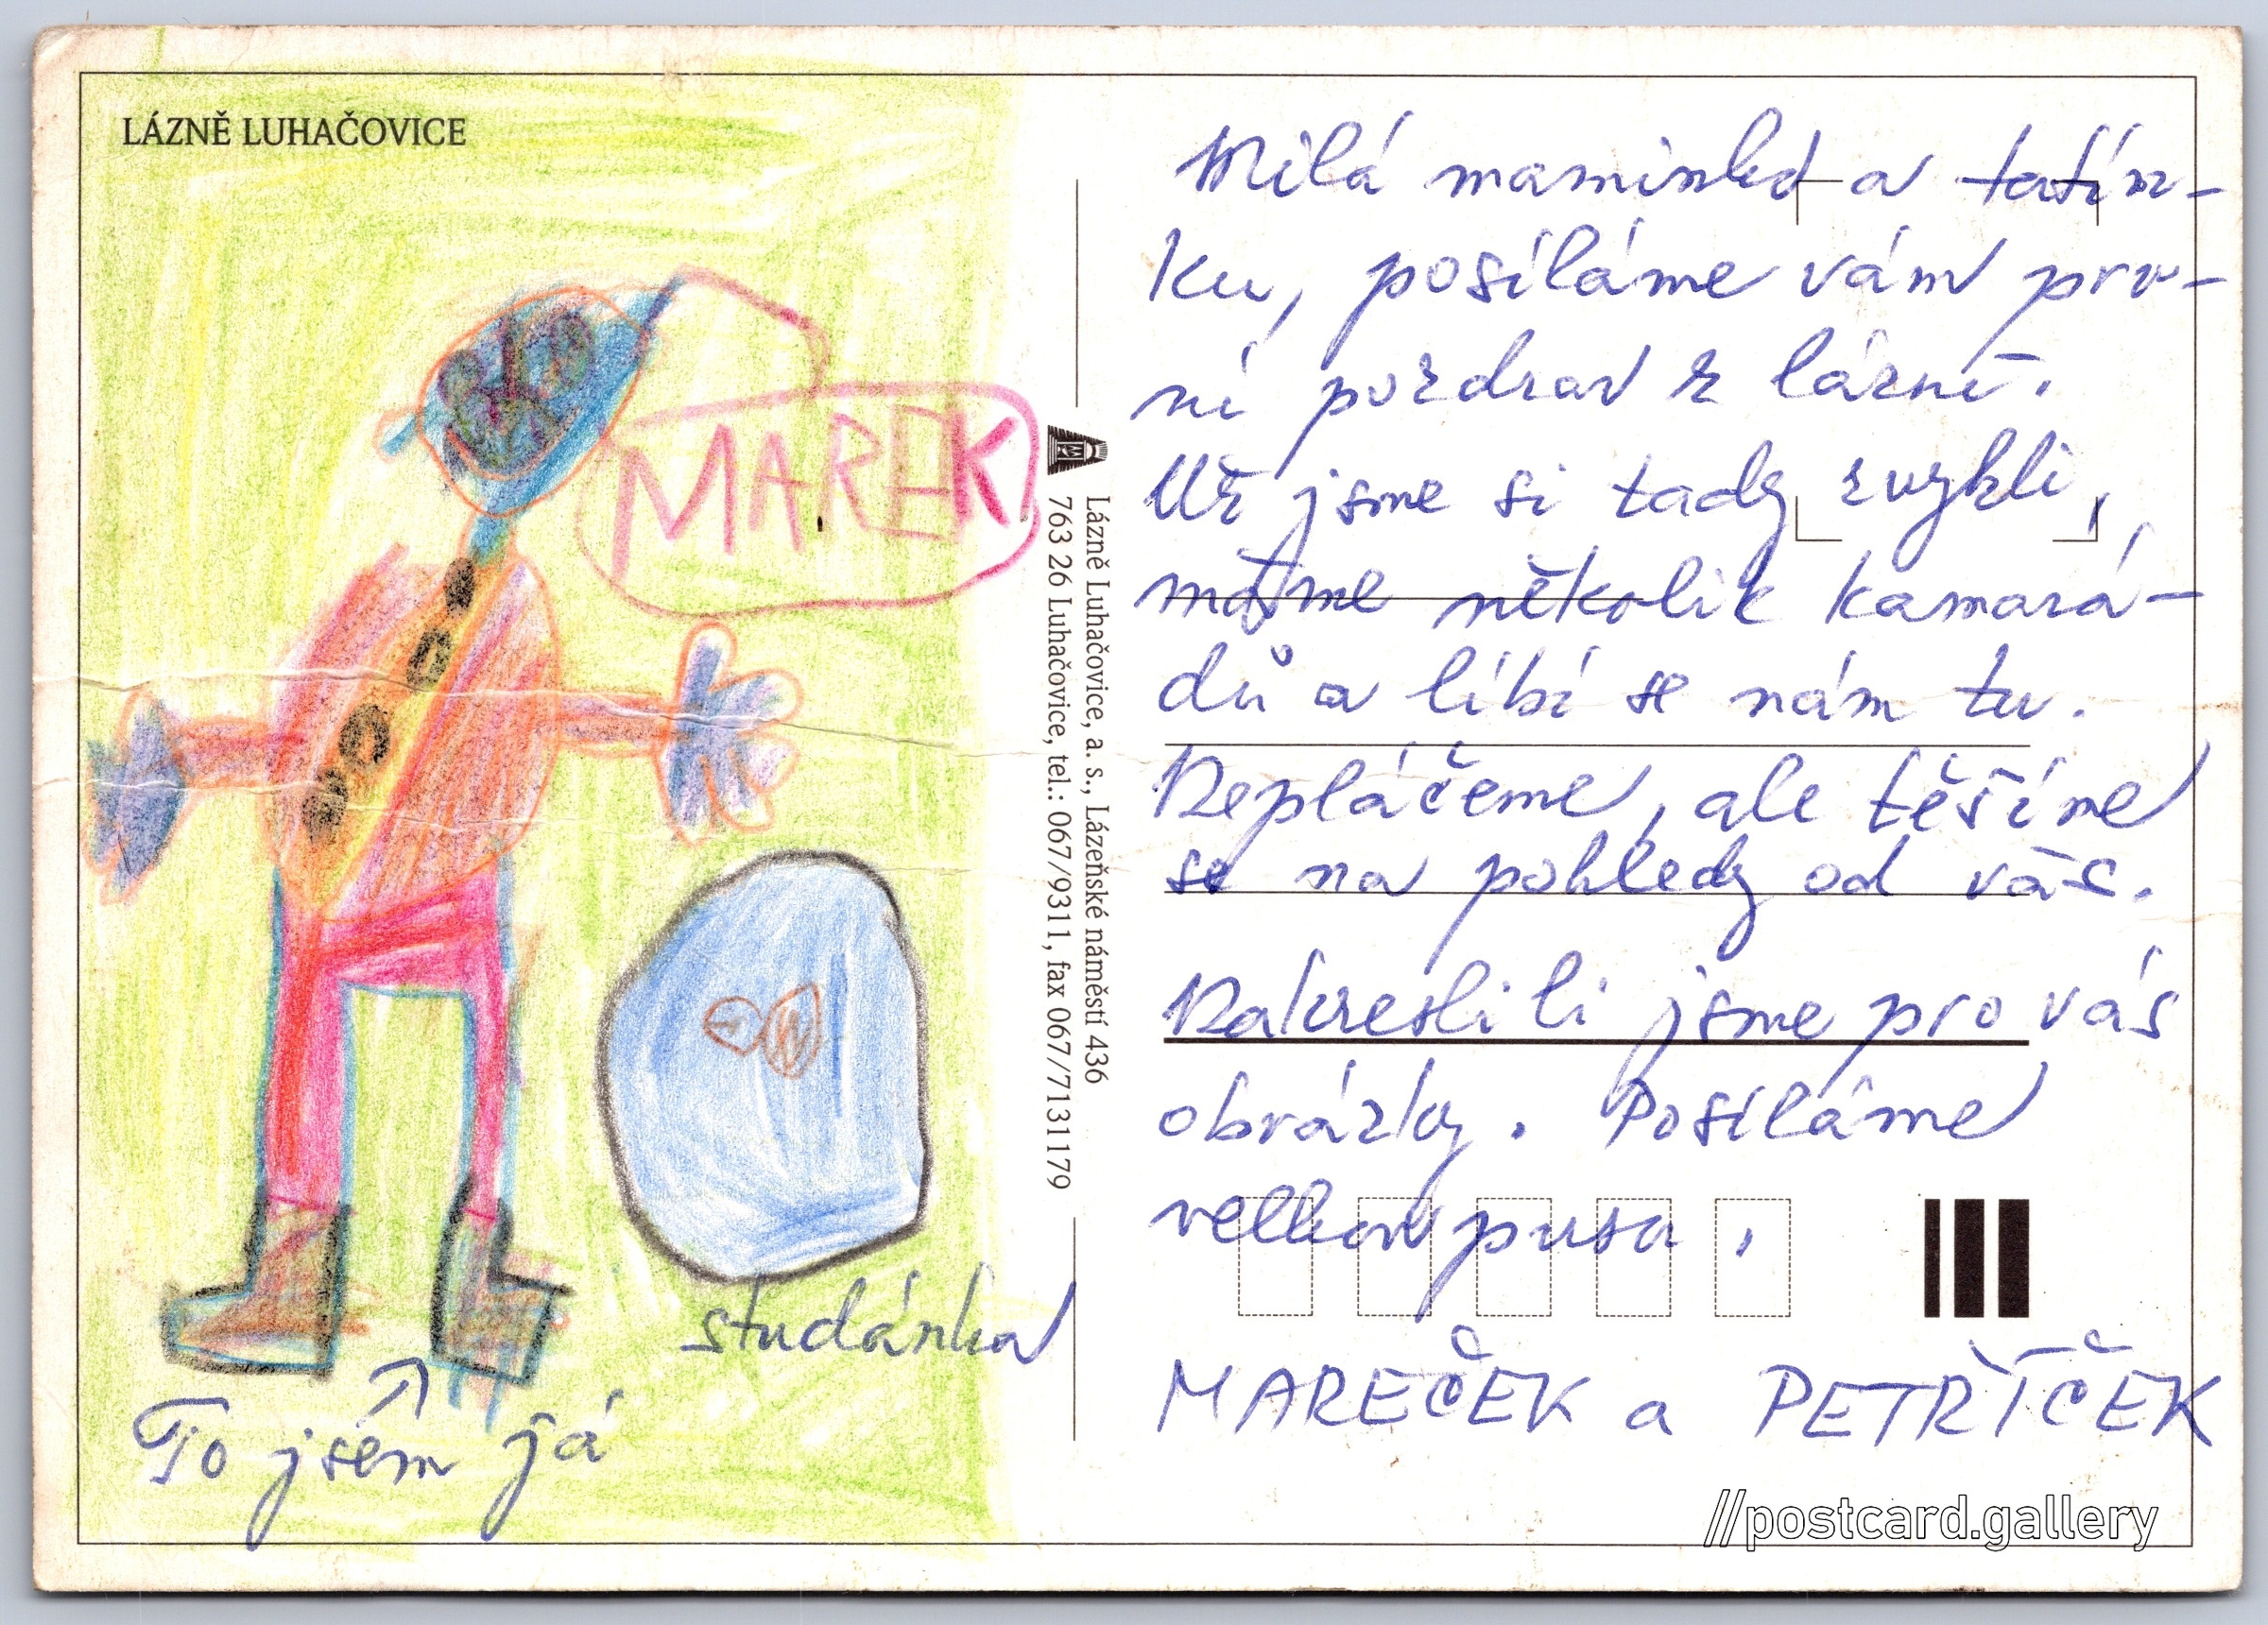 LÁZNĚ LUHAČOVICE
MAREK
studánka
To jsem já
Lázně Luhačovice, a. s., Lázeňské náměstí 436
763 26 Luhačovice, tel.: 067/9311, fax 067/7131179
Milá maminko a tatín-
ku, posíláme vám prv-
ní pozdrav z lázní.
Už jsme si tady zvykli,
máme několik kamará-
dů a líbí se nám tu.
Nepláčeme, ale těšíme
se na pohledy od vás.
Nakreslili jsme pro vás
obrázky. Posíláme
velkou pusu,
MAREČEK a PETŘÍČEK
//postcard.gallery